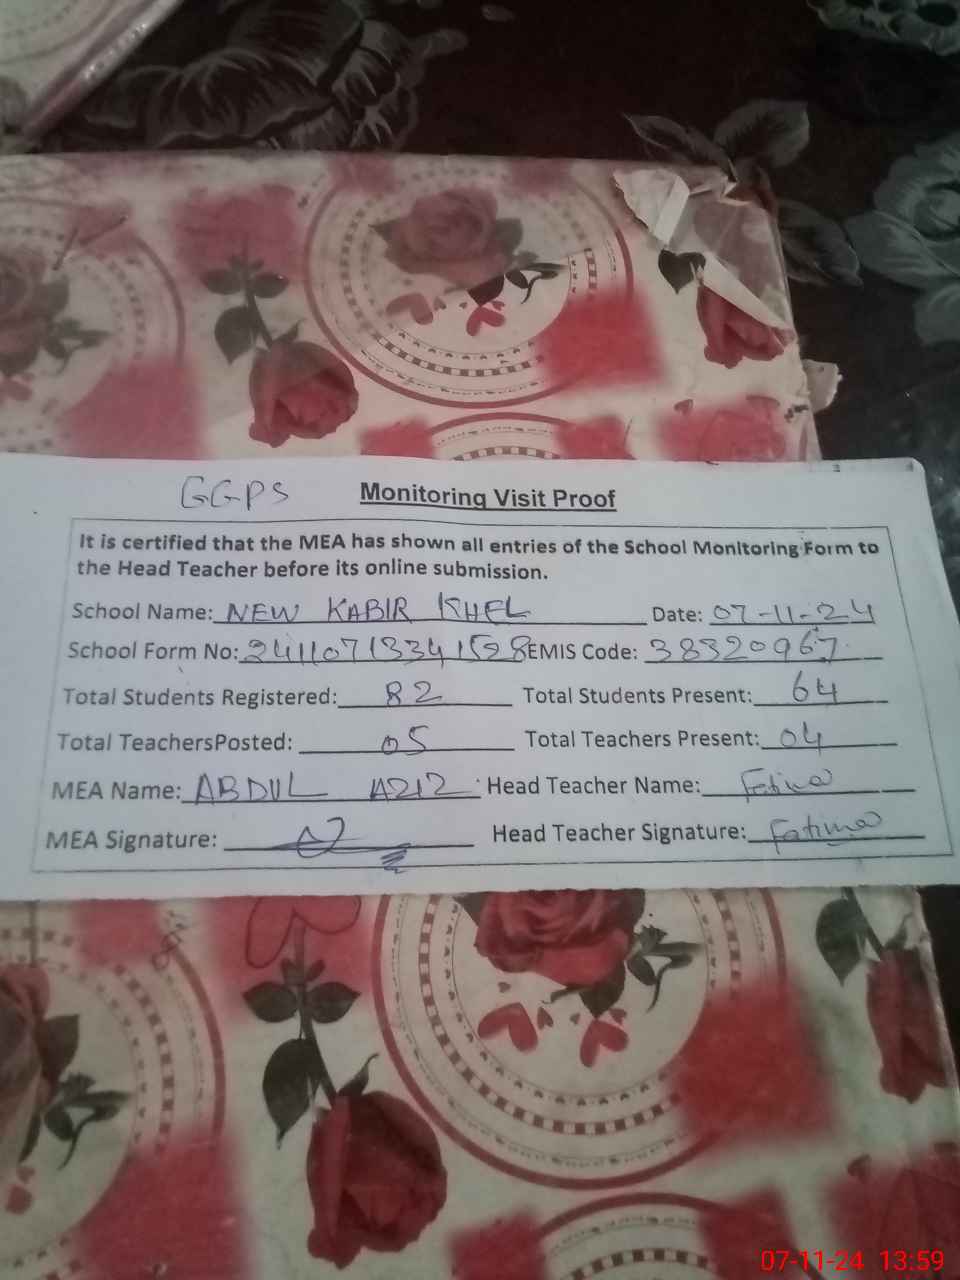 GGPS Monitoring Visit Proof
It is certified that the MEA has shown all entries of the School Monitoring Form to
the Head Teacher before its online submission.
School Name: NEW KABIR KHEL Date: 07-11-24
School Form No: 24110713341528 EMIS Code: 38320967
Total Students Registered: 82 Total Students Present: 64
Total TeachersPosted: 05 Total Teachers Present: 04
MEA Name: ABDUL AZIZ Head Teacher Name: Fatima
MEA Signature: Head Teacher Signature: Fatima
07-11-24 13:59